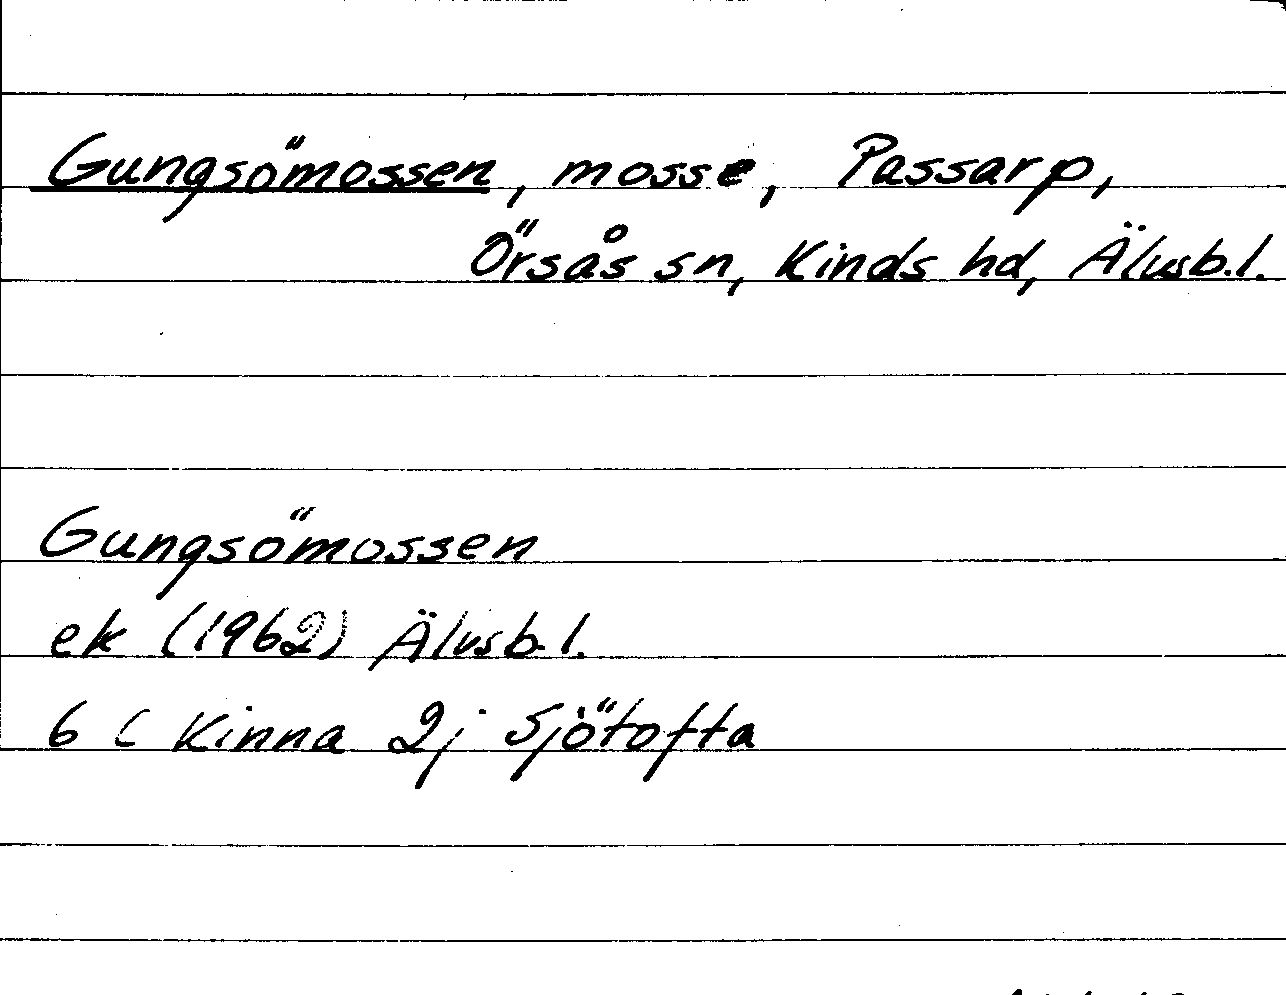 Gungsömossen, mosse, Passarp,
Örsås sn, Kinds hd, Älvsb.l.
Gungsömossen
ek (1962) Älvsb.l.
6 C Kinna 2j Sjötofta